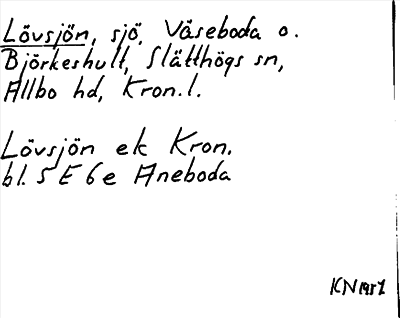 Lövsjön, sjö, Väseboda o.
Björkeshult, Slätthögs sn,
Allbo hd, Kron.l.
Lövsjön ek Kron.
bl. 5 E 6 e Aneboda
KN 1957